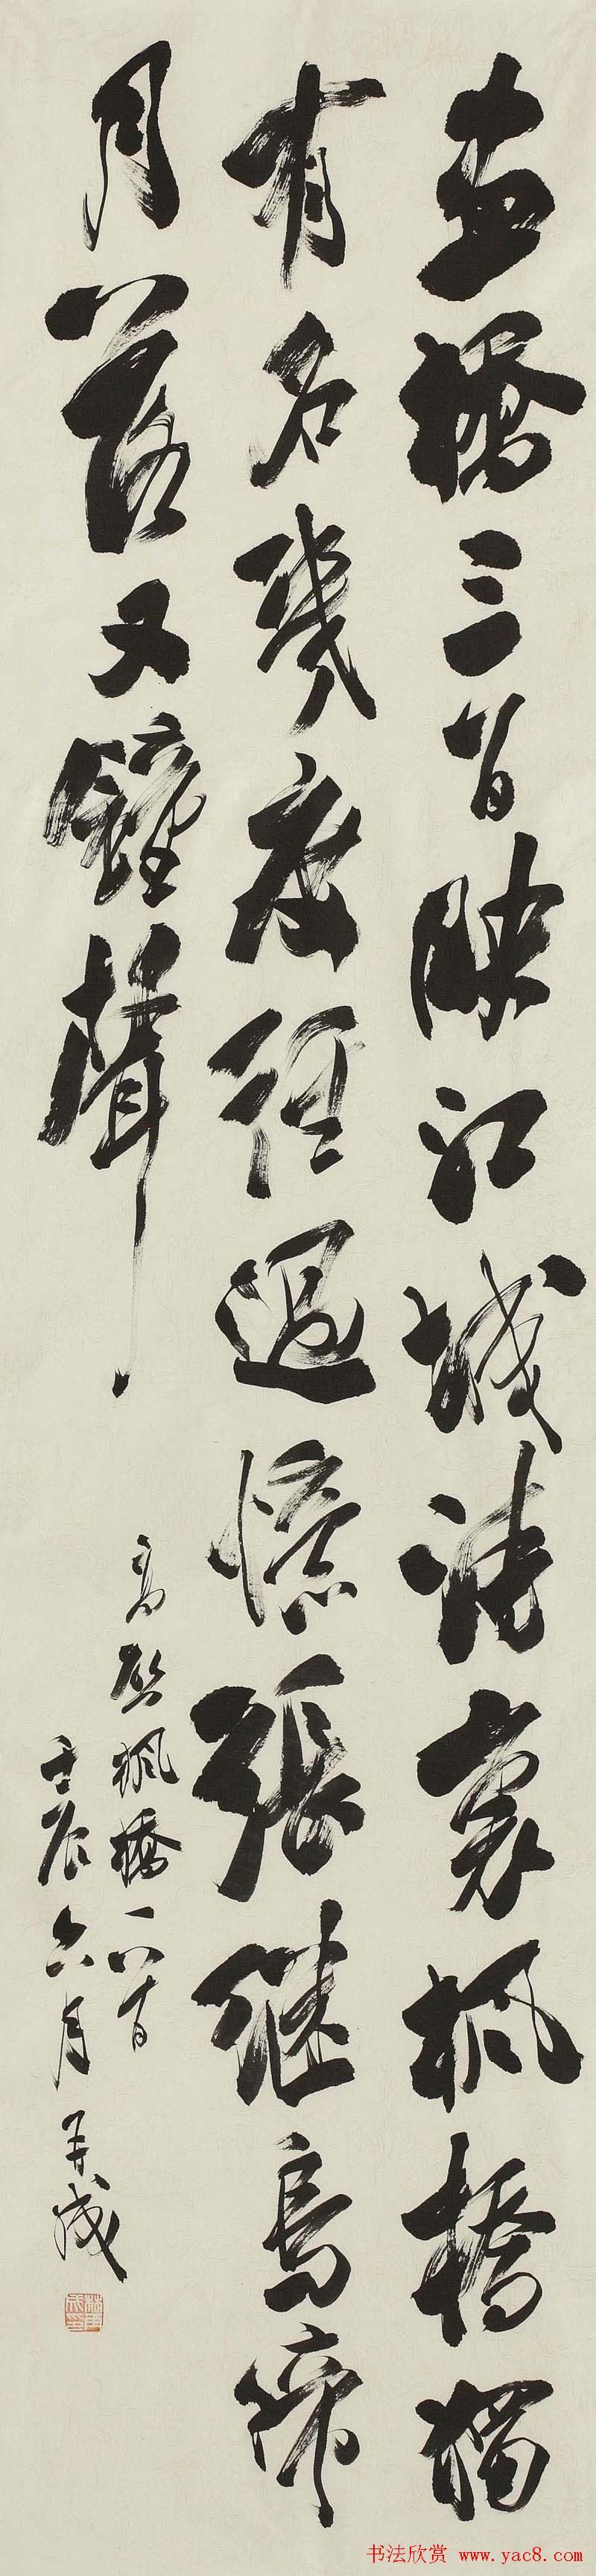 畫橋三百映江城詩裏楓橋獨
有名幾度經過憶張継烏啼
月落又鐘聲
高啟楓橋一首
壬辰六月再成
林再成印
书法欣赏 www.yac8.com